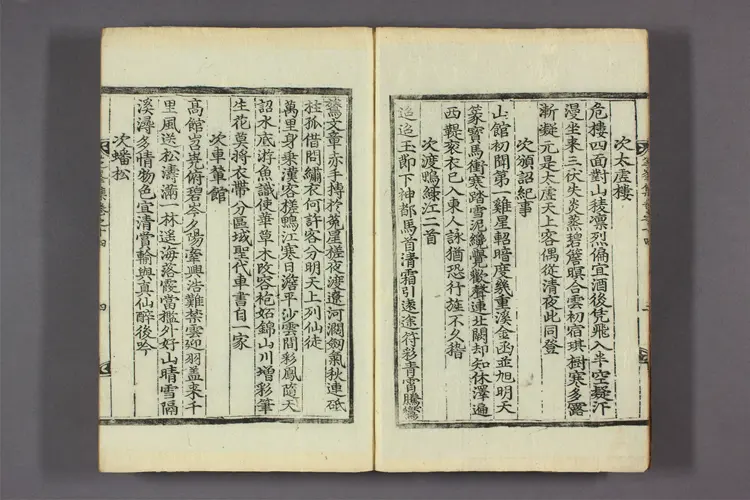 次太虛樓
危樓四面對山稜凜烈偏宜酒後凭飛入半空凝汗
漫坐來三伏失炎蒸碧簷暝合雲初宿琪樹寒多露
漸凝元是太虛天上客偶從清夜此同登
次頒詔紀事
山館初聞第一雞星軺暗度幾重溪金函並旭明天
篆寶馬衝寒踏雪泥纔疊歡聲連北闕却知休澤遍
西鞮袞衣已入東人詠猶恐行旌不久稽
次渡鴨綠江二首
迢迢玉節下神都馬首清霜引遠途符彩青霄騰鸞
鷟文章赤手持於菟星槎夜渡遼河濶劒氣秋連砥
柱孤借問繡衣何許客分明天上列仙徒
萬里身乘漢客槎鴨江寒日澹平沙雲間彩鳳隨天
詔水底游魚識使華草木改容袍妬錦山川增彩筆
生花莫將衣帶分區域聖代車書自一家
次車輦館
高館岧嶢俯碧岑夕陽牽興浩難禁雲迎羽盖來千
里風送松濤滿一林遙海落霞當檻外好山晴雪隔
溪潯多情物色宜清賞輸與真仙醉後吟
次蟠松
四